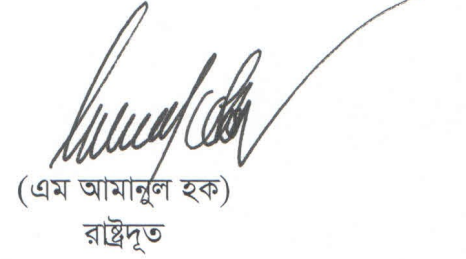 (এম আমানুল হক)
রাষ্ট্রদূত